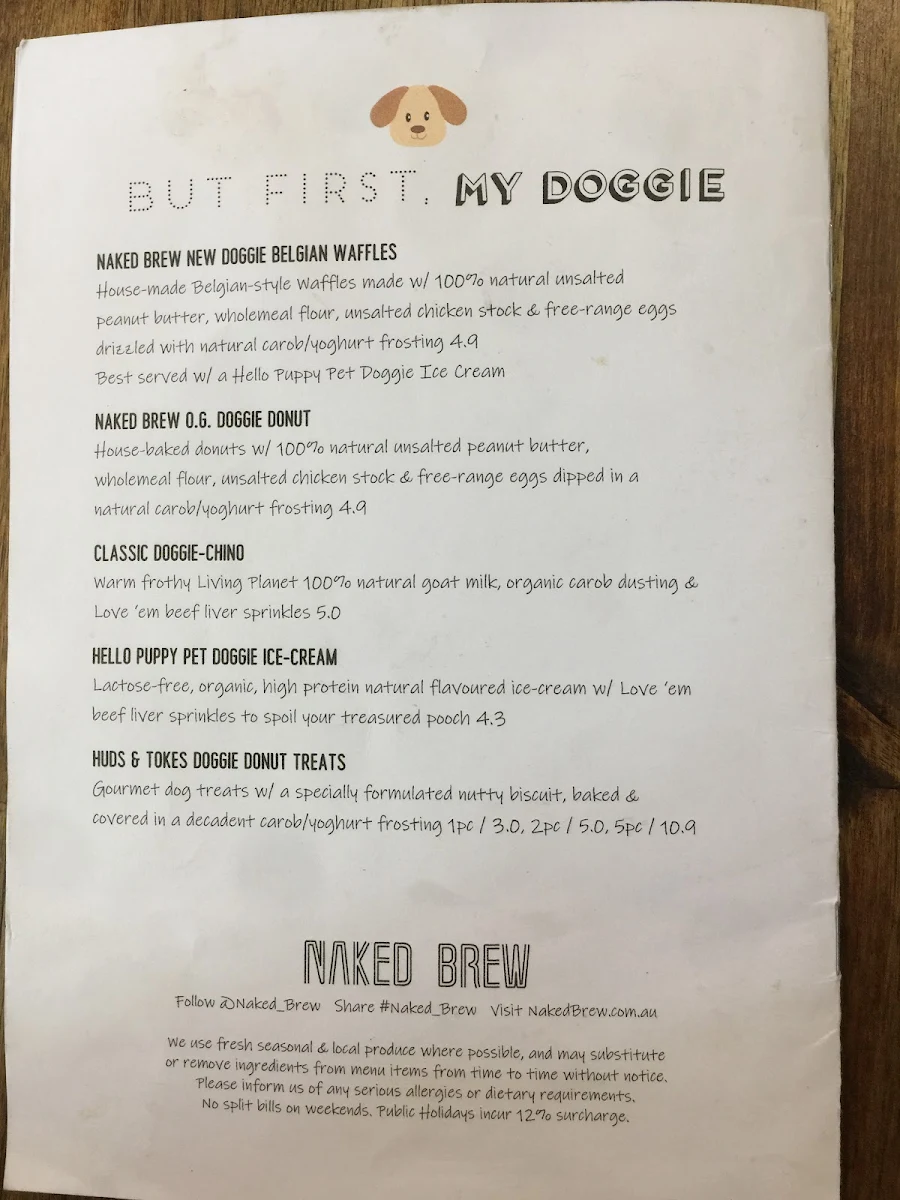 BUT FIRST, MY DOGGIE
NAKED BREW NEW DOGGIE BELGIAN WAFFLES
House-made Belgian-style Waffles made w/ 100% natural unsalted
peanut butter, wholemeal flour, unsalted chicken stock & free-range eggs
drizzled with natural carob/yoghurt frosting 4.9
Best served w/ a Hello Puppy Pet Doggie Ice Cream
NAKED BREW O.G. DOGGIE DONUT
House-baked donuts w/ 100% natural unsalted peanut butter,
wholemeal flour, unsalted chicken stock & free-range eggs dipped in a
natural carob/yoghurt frosting 4.9
CLASSIC DOGGIE-CHINO
Warm frothy Living Planet 100% natural goat milk, organic carob dusting &
Love 'em beef liver sprinkles 5.0
HELLO PUPPY PET DOGGIE ICE-CREAM
Lactose-free, organic, high protein natural flavoured ice-cream w/ Love 'em
beef liver sprinkles to spoil your treasured pooch 4.3
HUDS & TOKES DOGGIE DONUT TREATS
Gourmet dog treats w/ a specially formulated nutty biscuit, baked &
covered in a decadent carob/yoghurt frosting 1pc / 3.0, 2pc / 5.0, 5pc / 10.9
NAKED BREW
Follow @Naked_Brew Share #Naked_Brew Visit NakedBrew.com.au
We use fresh seasonal & local produce where possible, and may substitute
or remove ingredients from menu items from time to time without notice.
Please inform us of any serious allergies or dietary requirements.
No split bills on weekends. Public Holidays incur 12% surcharge.